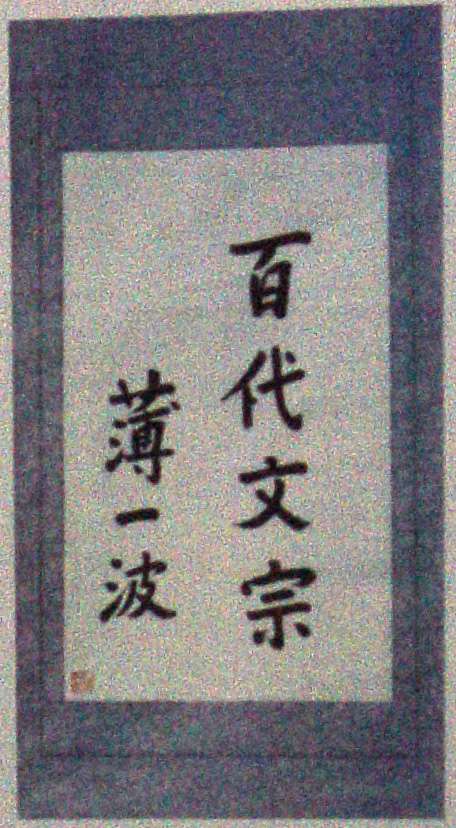 百代文宗
薄一波